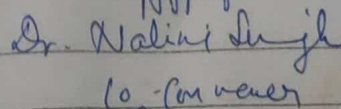 Dr. Nalini Singh
Co-Convener